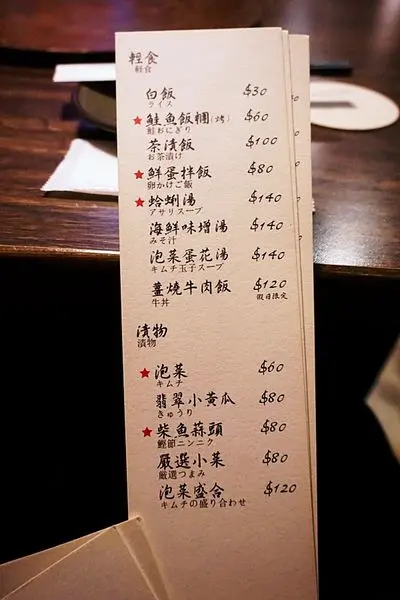 輕食
軽食
白飯 $30
ライス
★鮭魚飯糰(烤) $60
鮭おにぎり
茶漬飯 $100
お茶漬け
★鮮蛋拌飯 $80
卵かけご飯
★蛤蜊湯 $140
アサリスープ
海鮮味增湯 $140
みそ汁
泡菜蛋花湯 $140
キムチ玉子スープ
薑燒牛肉飯 $120
牛丼 假日限定
漬物
漬物
★泡菜 $60
キムチ
翡翠小黃瓜 $80
きゅうり
★柴魚蒜頭 $80
鰹節ニンニク
嚴選小菜 $80
厳選つまみ
泡菜盛合 $120
キムチの盛り合わせ